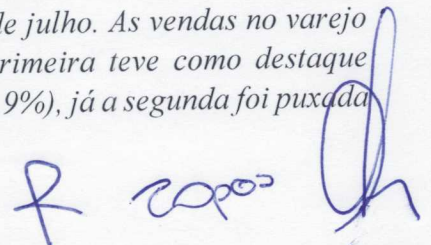 de julho. As vendas no varejo
rimeira teve como destaque
9%), já a segunda foi puxada